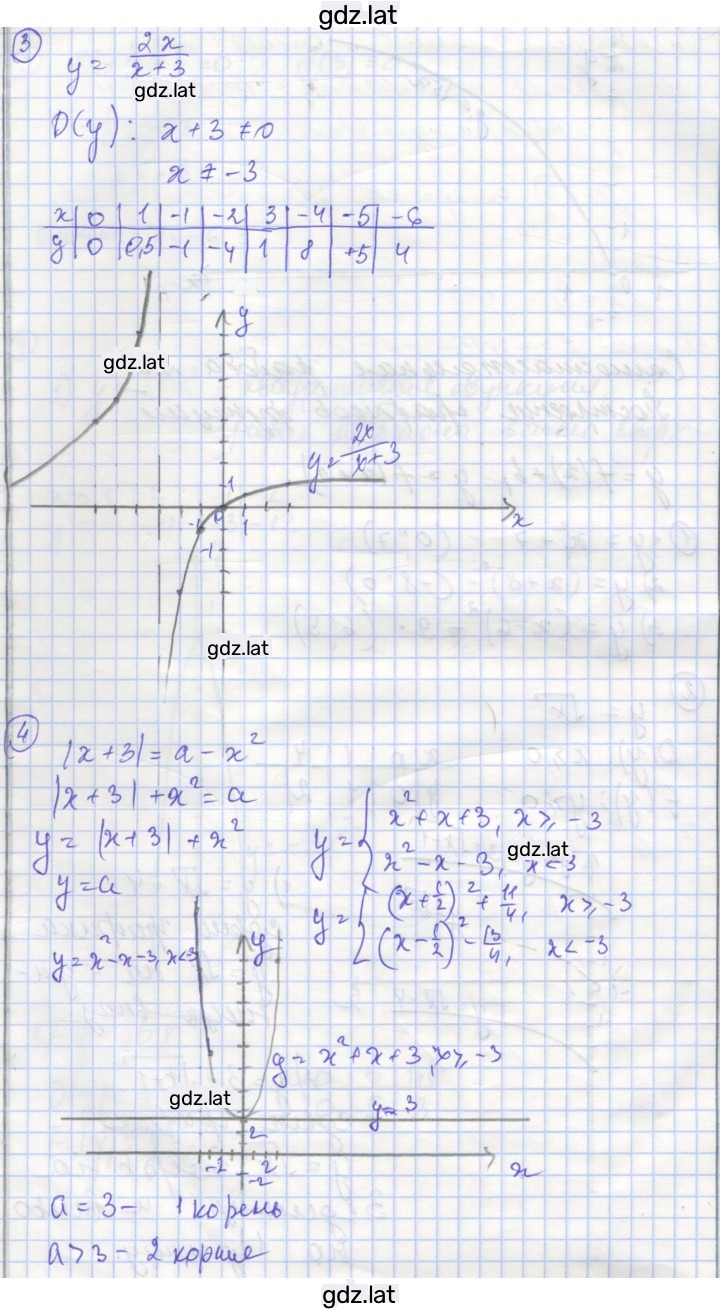 gdz.lat
3
y = 2x / x+3
gdz.lat
D(y): x + 3 ≠ 0
x ≠ -3
x | 0 | 1 | -1 | -2 | 3 | -4 | -5 | -6
y | 0 | 0,5 | -1 | -4 | 1 | 8 | +5 | 4
y
gdz.lat
y = 2x / x+3
1
-1 0 1 x
-1
gdz.lat
4
|x+3| = a - x²
|x+3| + x² = a
y = |x+3| + x²
y = a
y = { x² + x + 3, x ≥ -3
x² - x - 3, x < 3
gdz.lat
y = { (x + 1/2)² + 11/4, x ≥ -3
(x - 1/2)² - 13/4, x < -3
y = x² - x - 3, x < 3
y
y = x² + x + 3, x ≥ -3
gdz.lat
y = 3
2
-2 2 x
-2
a = 3 - 1 корень
a > 3 - 2 корня
gdz.lat